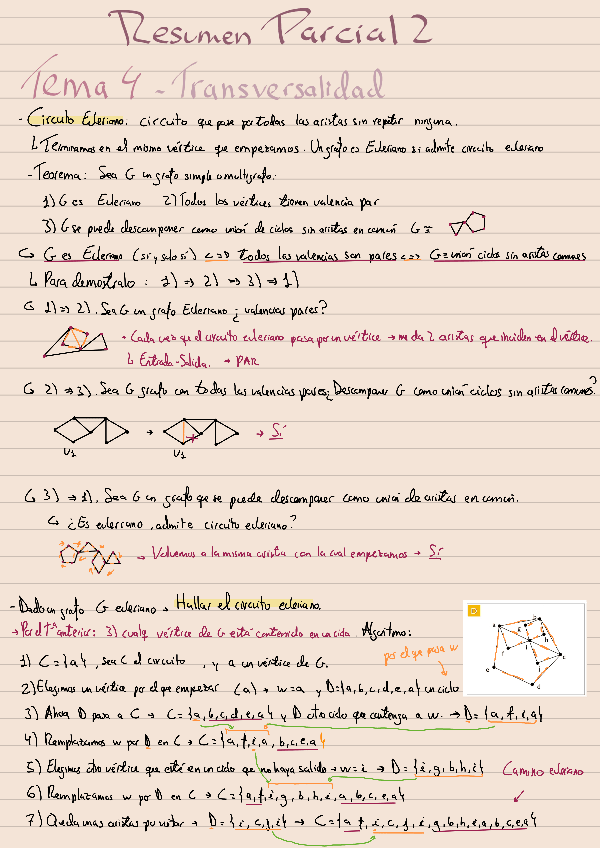 Resumen Parcial 2
Tema 4 - Transversalidad
- Circuito Euleriano. circuito que pase por todas las aristas sin repetir ninguna.
↳ Terminamos en el mismo vértice que empezamos. Un grafo es Euleriano si admite circuito euleriano
- Teorema: Sea G un grafo simple o multigrafo.
1) G es Euleriano 2) Todos los vértices tienen valencia par
3) G se puede descomponer como unión de ciclos sin aristas en común G =
↳ G es Euleriano (si y solo si) <=> todas las valencias son pares <=> G = unión ciclos sin aristas comunes
↳ Para demostrarlo : 1) → 2) → 3) → 1)
↳ 1) => 2). Sea G un grafo Euleriano ¿ valencias pares?
• Cada vez que el circuito euleriano pasa por un vértice → me da 2 aristas que inciden en el vértice.
↳ Entrada-Salida. → PAR
↳ 2) => 3). Sea G grafo con todas las valencias pares ¿ Descomponer G como unión ciclos sin aristas comunes?
→ → Sí
V1 V1
↳ 3) => 1). Sea G un grafo que se puede descomponer como unión de aristas en común.
↳ ¿Es euleriano, admite circuito euleriano?
→ Volvemos a la misma arista con la cual empezamos → Sí
- Dado un grafo G euleriano → Hallar el circuito euleriano.
→ Por el Tª anterior: 3) cualq vértice de G está contenido en un ciclo. Algoritmo:
1) C = {a} , sea C el circuito , y a un vértice de G.
por el que pasa w
2) Elegimos un vértice por el que empezar (a) → w=a y D={a,b,c,d,e,a} un ciclo
3) Ahora D pasa a C → C={a,b,c,d,e,a} y D otro ciclo que contenga a w. → D={a,f,i,a}
4) Remplazamos w por D en C → C={a,f,i,a,b,c,e,a}
5) Elegimos otro vértice que esté en un ciclo que no haya salido → w=i → D={i,g,b,h,i}
Camino euleriano
6) Remplazamos w por D en C → C={a,f,i,g,b,h,i,a,b,c,e,a}
7) Quedan unas aristas por visitar → D={i,c,f,i} → C={a,f,i,c,f,i,g,b,h,e,a,b,c,e,a}